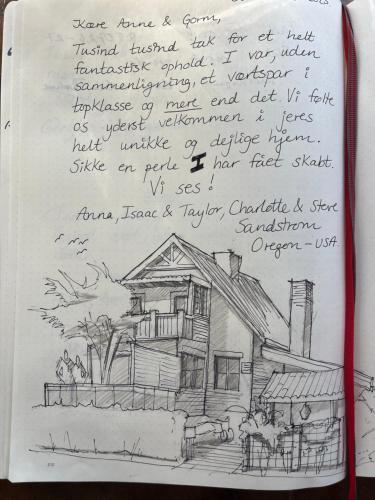 Kære Anne & Gorm,
Tusind tusind tak for et helt
fantastisk ophold. I var, uden
sammenligning, et værtspar i
topklasse og mere end det. Vi følte
os yderst velkommen i jeres
helt unikke og dejlige hjem.
Sikke en perle I har fået skabt.
Vi ses!
Anna, Isaac & Taylor, Charlotte & Steve
Sandstrom
Oregon - USA.